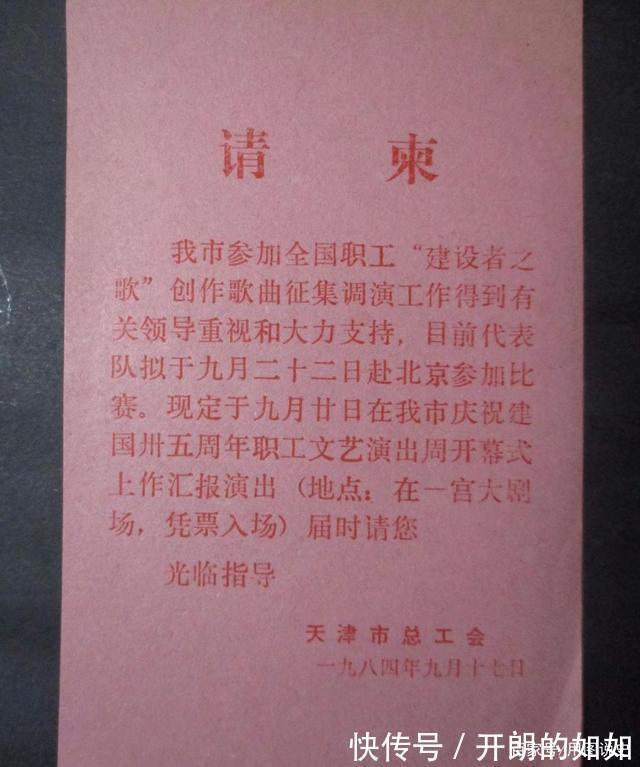 请 柬
我市参加全国职工“建设者之
歌”创作歌曲征集调演工作得到有
关领导重视和大力支持，目前代表
队拟于九月二十二日赴北京参加比
赛。现定于九月廿日在我市庆祝建
国卅五周年职工文艺演出周开幕式
上作汇报演出（地点：在一宫大剧
场，凭票入场）届时请您
光临指导
天津市总工会
一九八四年九月十七日
快传号／开朗的如如